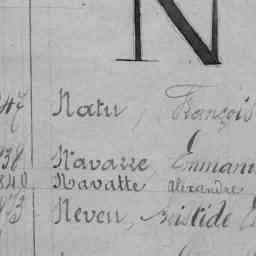 N
Natu, François
Navarre, Emmanu
840 Navatte Alexandre
Neveu, Aristide E